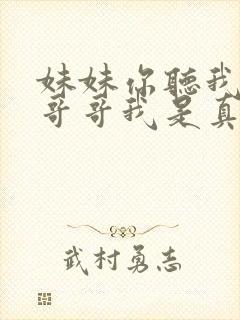 妹妹你聽我
哥哥我是真
武村勇志